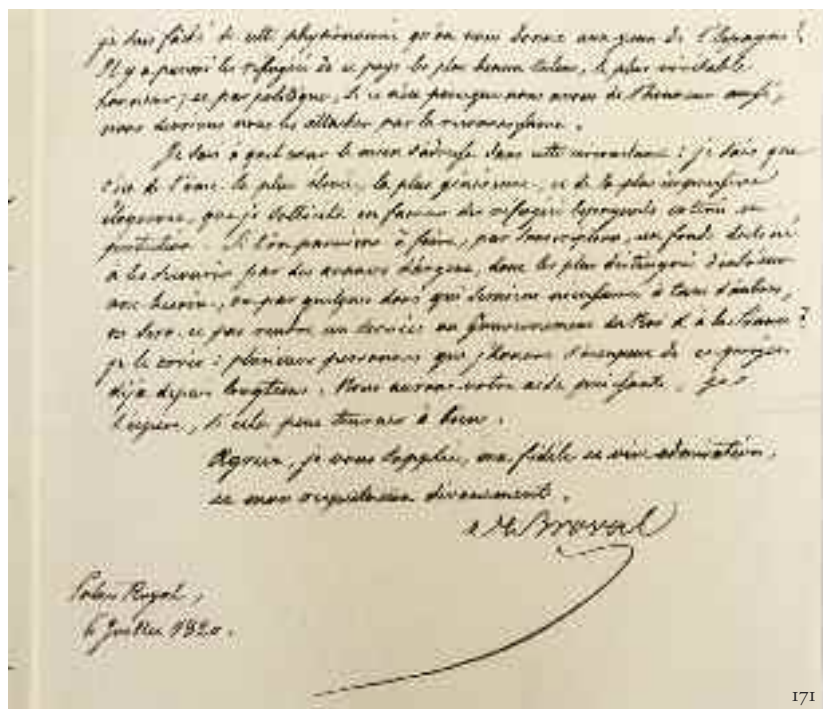 je suis fâché de cette physionomie qu'on nous donne aux yeux de l'Espagne !
Il y a parmi les réfugiés de ce pays les plus beaux talens, le plus véritable
honneur ; et par politique, si ce n'est parceque nous avons de l'honneur aussi,
nous devrions nous les attacher par la reconnaissance.
Je sais à quel cœur le mien s'adresse dans cette circonstance : je sais que
c'est de l'âme la plus élevée, la plus généreuse, et de la plus
éloquence, que je sollicite en faveur des réfugiés Espagnols
protection. Si l'on parvient à faire, par souscription, un fonds destiné
à les secourir par des avances d'argent, dont les plus distingués
avec besoin, ou par quelques dons qui seraient nécessaires à tant d'autres,
ne sera-ce pas rendre un service au Gouvernement du Roi & à la France ?
je le crois : plusieurs personnes que j'honore s'occupent de ce projet
déjà depuis longtems. Nous aurons votre aide puissante, je
l'espère, si cela peut tourner à bien.
Agréez, je vous supplie, ma fidèle et vive admiration,
et mon respectueux dévouement.
de Broval
Palais Royal,
6 Juillet 1820.
171